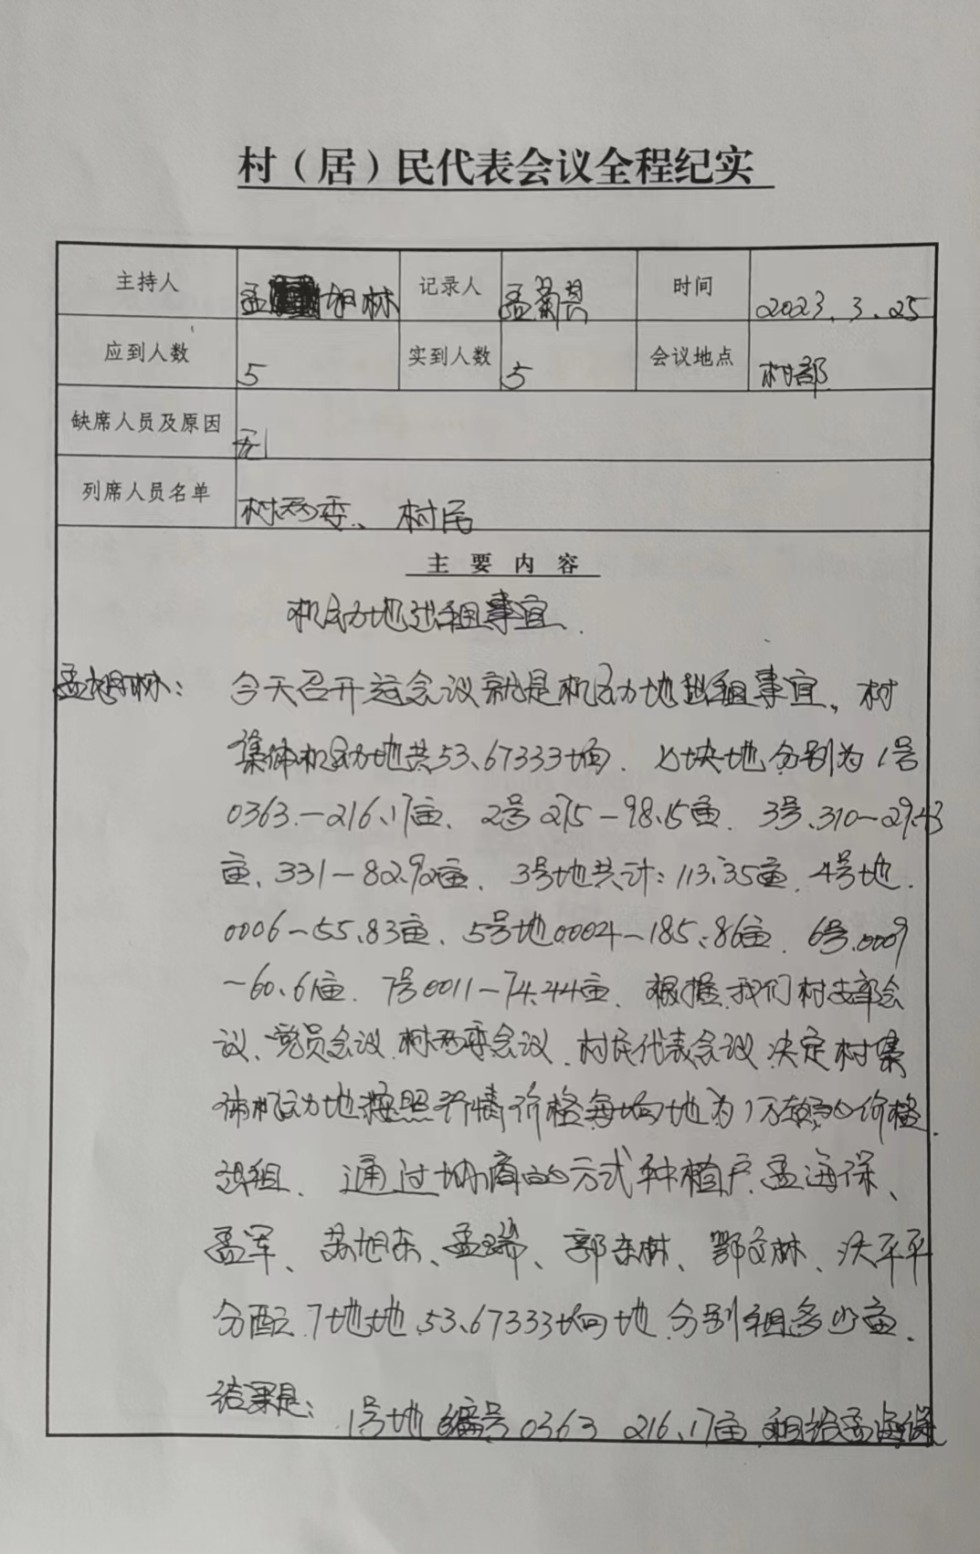 村（居）民代表会议全程纪实
主持人 孟旭林 记录人 孟菊 时间 2023.3.25
应到人数 5 实到人数 5 会议地点 村部
缺席人员及原因 无
列席人员名单 村两委、村民
主要内容
机动地出租事宜.
孟旭林: 今天召开这会议就是机动地出租事宜。村
集体机动地共53.67333垧. 7块地分别为1号
0363.—216.17亩. 2号275—98.15亩. 3号.310—29.43
亩、331—82.92亩. 3号地共计:113.35亩. 4号地.
0006—55.83亩. 5号地0004—185.86亩. 6号.0009
—60.61亩. 7号0011—74.44亩. 根据我们村支部会
议、党员会议.村两委会议.村民代表会议.决定村集
体机动地按照行情价格每垧地为1万的价格.
出租. 通过协商的方式种植户.孟海保、
孟军、苏旭东、孟瑞、郭东树、鄂文林、洪平平
分配.7地地.53.67333垧地.分别租多少亩.
结果是: 1号地 编号0363 216.17亩 租给孟海保